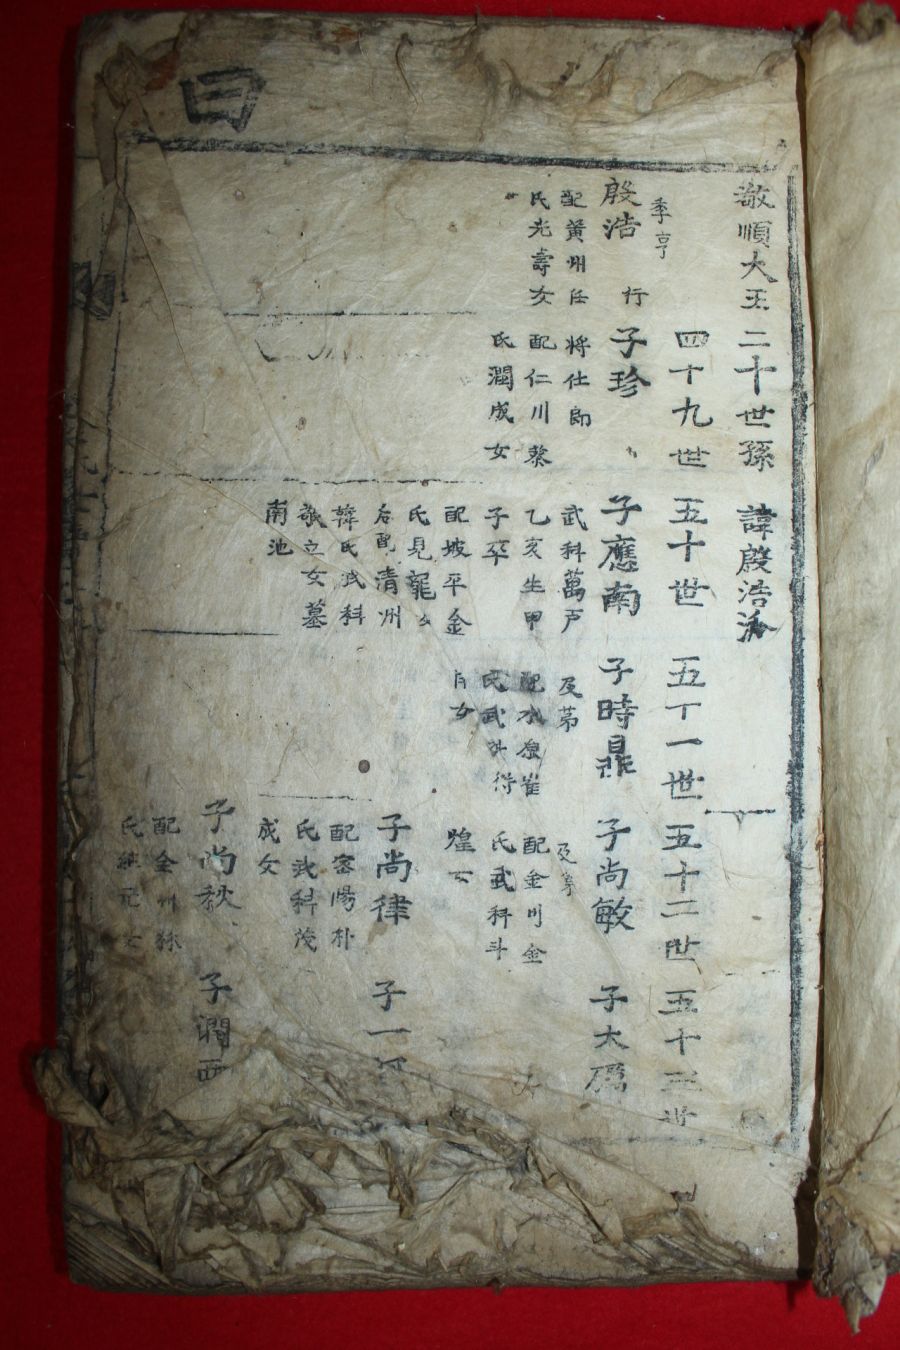 曰
敬順大王二十世孫 諱殷浩派
四十九世 五十世 五十一世 五十二世 五十三世
季亨
殷浩 行
配黃州任
氏光壽女
子珍
將仕郎
配仁川蔡
氏潤成女
子應南
武科萬戶
乙亥生甲
子卒
配坡平金
氏見寵女
后配清州
韓氏武科
敬立女墓
南池
子時鼎
及第
配水原崔
氏武科得
女
子尚敏
及第
配金川金
氏武科斗
煌女
子太
女
子尚律
配密陽朴
氏武科茂
成女
子一
子尚秋
配金川孫
氏 女
子潤西